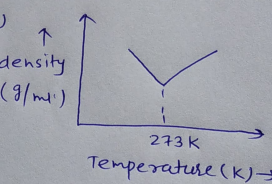 )
density
(g/ml)
273K
Temperature(K)